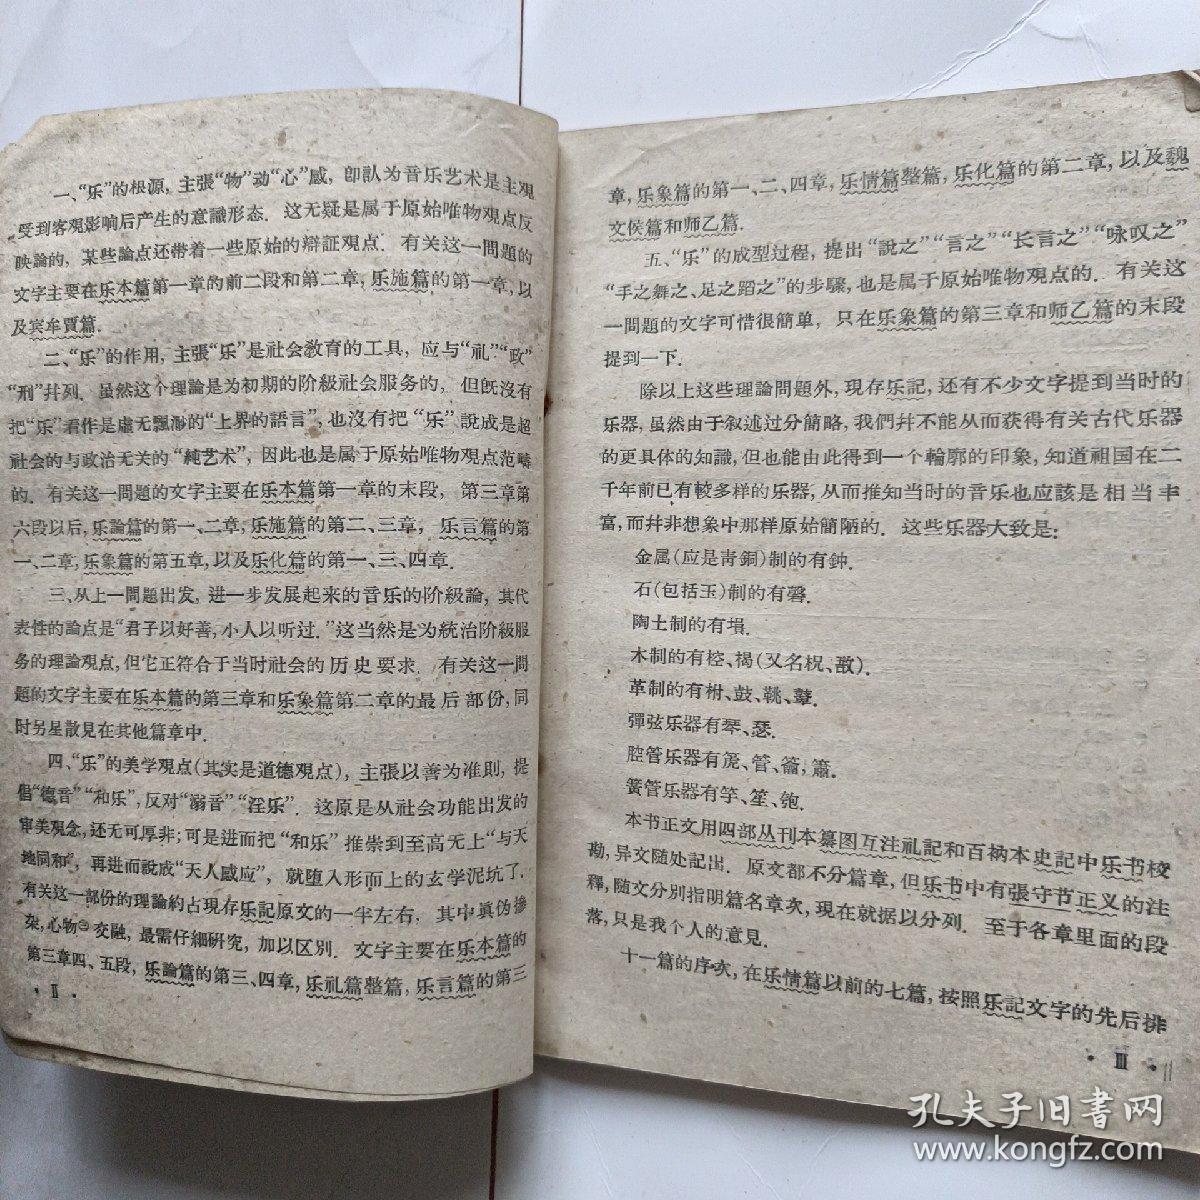 一、“乐”的根源，主張“物”动“心”感，卽認为音乐艺术是主观
受到客观影响后产生的意識形态．这无疑是属于原始唯物观点反
映論的，某些論点还带着一些原始的辯証观点．有关这一問題的
文字主要在乐本篇第一章的前二段和第二章，乐施篇的第一章，以
及宾牟賈篇．
二、“乐”的作用，主張“乐”是社会教育的工具，应与“礼”“政”
“刑”幷列．虽然这个理論是为初期的阶級社会服务的，但旣沒有
把“乐”看作是虛无飄渺的“上界的語言”，也沒有把“乐”說成是超
社会的与政治无关的“純艺术”，因此也是属于原始唯物观点范畴
的．有关这一問題的文字主要在乐本篇第一章的末段，第三章第
六段以后，乐論篇的第一、二章，乐施篇的第二、三章，乐言篇的第
一、二章，乐象篇的第五章，以及乐化篇的第一、三、四章．
三、从上一問題出发，进一步发展起来的音乐的阶級論，其代
表性的論点是“君子以好善，小人以听过．”这当然是为統治阶級服
务的理論观点，但它正符合于当时社会的历史要求．有关这一問
題的文字主要在乐本篇的第三章和乐象篇第二章的最后部份，同
时另星散見在其他篇章中．
四、“乐”的美学观点（其实是道德观点），主張以善为准則，提
倡“德音”“和乐”，反对“溺音”“淫乐”．这原是从社会功能出发的
审美观念，还无可厚非；可是进而把“和乐”推崇到至高无上“与天
地同和”，再进而說成“天人感应”，就堕入形而上的玄学泥坑了．
有关这一部份的理論約占現存乐記原文的一半左右，其中真伪摻
杂，心物㊁交融，最需仔細研究，加以区別．文字主要在乐本篇的
第三章四、五段，乐論篇的第三、四章，乐礼篇整篇，乐言篇的第三
·Ⅱ·
章，乐象篇的第一、二、四章，乐情篇整篇，乐化篇的第二章，以及魏
文侯篇和师乙篇．
五、“乐”的成型过程，提出“說之”“言之”“长言之”“咏叹之”
“手之舞之、足之蹈之”的步驟，也是属于原始唯物观点的．有关这
一問題的文字可惜很簡单，只在乐象篇的第三章和师乙篇的末段
提到一下．
除以上这些理論問題外，現存乐記，还有不少文字提到当时的
乐器，虽然由于叙述过分簡略，我們幷不能从而获得有关古代乐器
的更具体的知識，但也能由此得到一个輪廓的印象，知道祖国在二
千年前已有較多样的乐器，从而推知当时的音乐也应該是相当丰
富，而幷非想象中那样原始簡陋的．这些乐器大致是：
金属（应是靑銅）制的有鈡．
石（包括玉）制的有磬．
陶土制的有塤．
木制的有椌、楬（又名柷、敔）．
革制的有柎、鼓、鞉、鼙．
彈弦乐器有琴、瑟．
腔管乐器有箎、管、籥，簫．
簧管乐器有竽、笙、匏．
本书正文用四部丛刊本纂图互注礼記和百衲本史記中乐书校
勘，异文随处記出．原文都不分篇章，但乐书中有張守节正义的注
釋，随文分別指明篇名章次，現在就据以分列．至于各章里面的段
落，只是我个人的意見．
十一篇的序次，在乐情篇以前的七篇，按照乐記文字的先后排
·Ⅲ·
孔夫子旧書网
www.kongfz.com